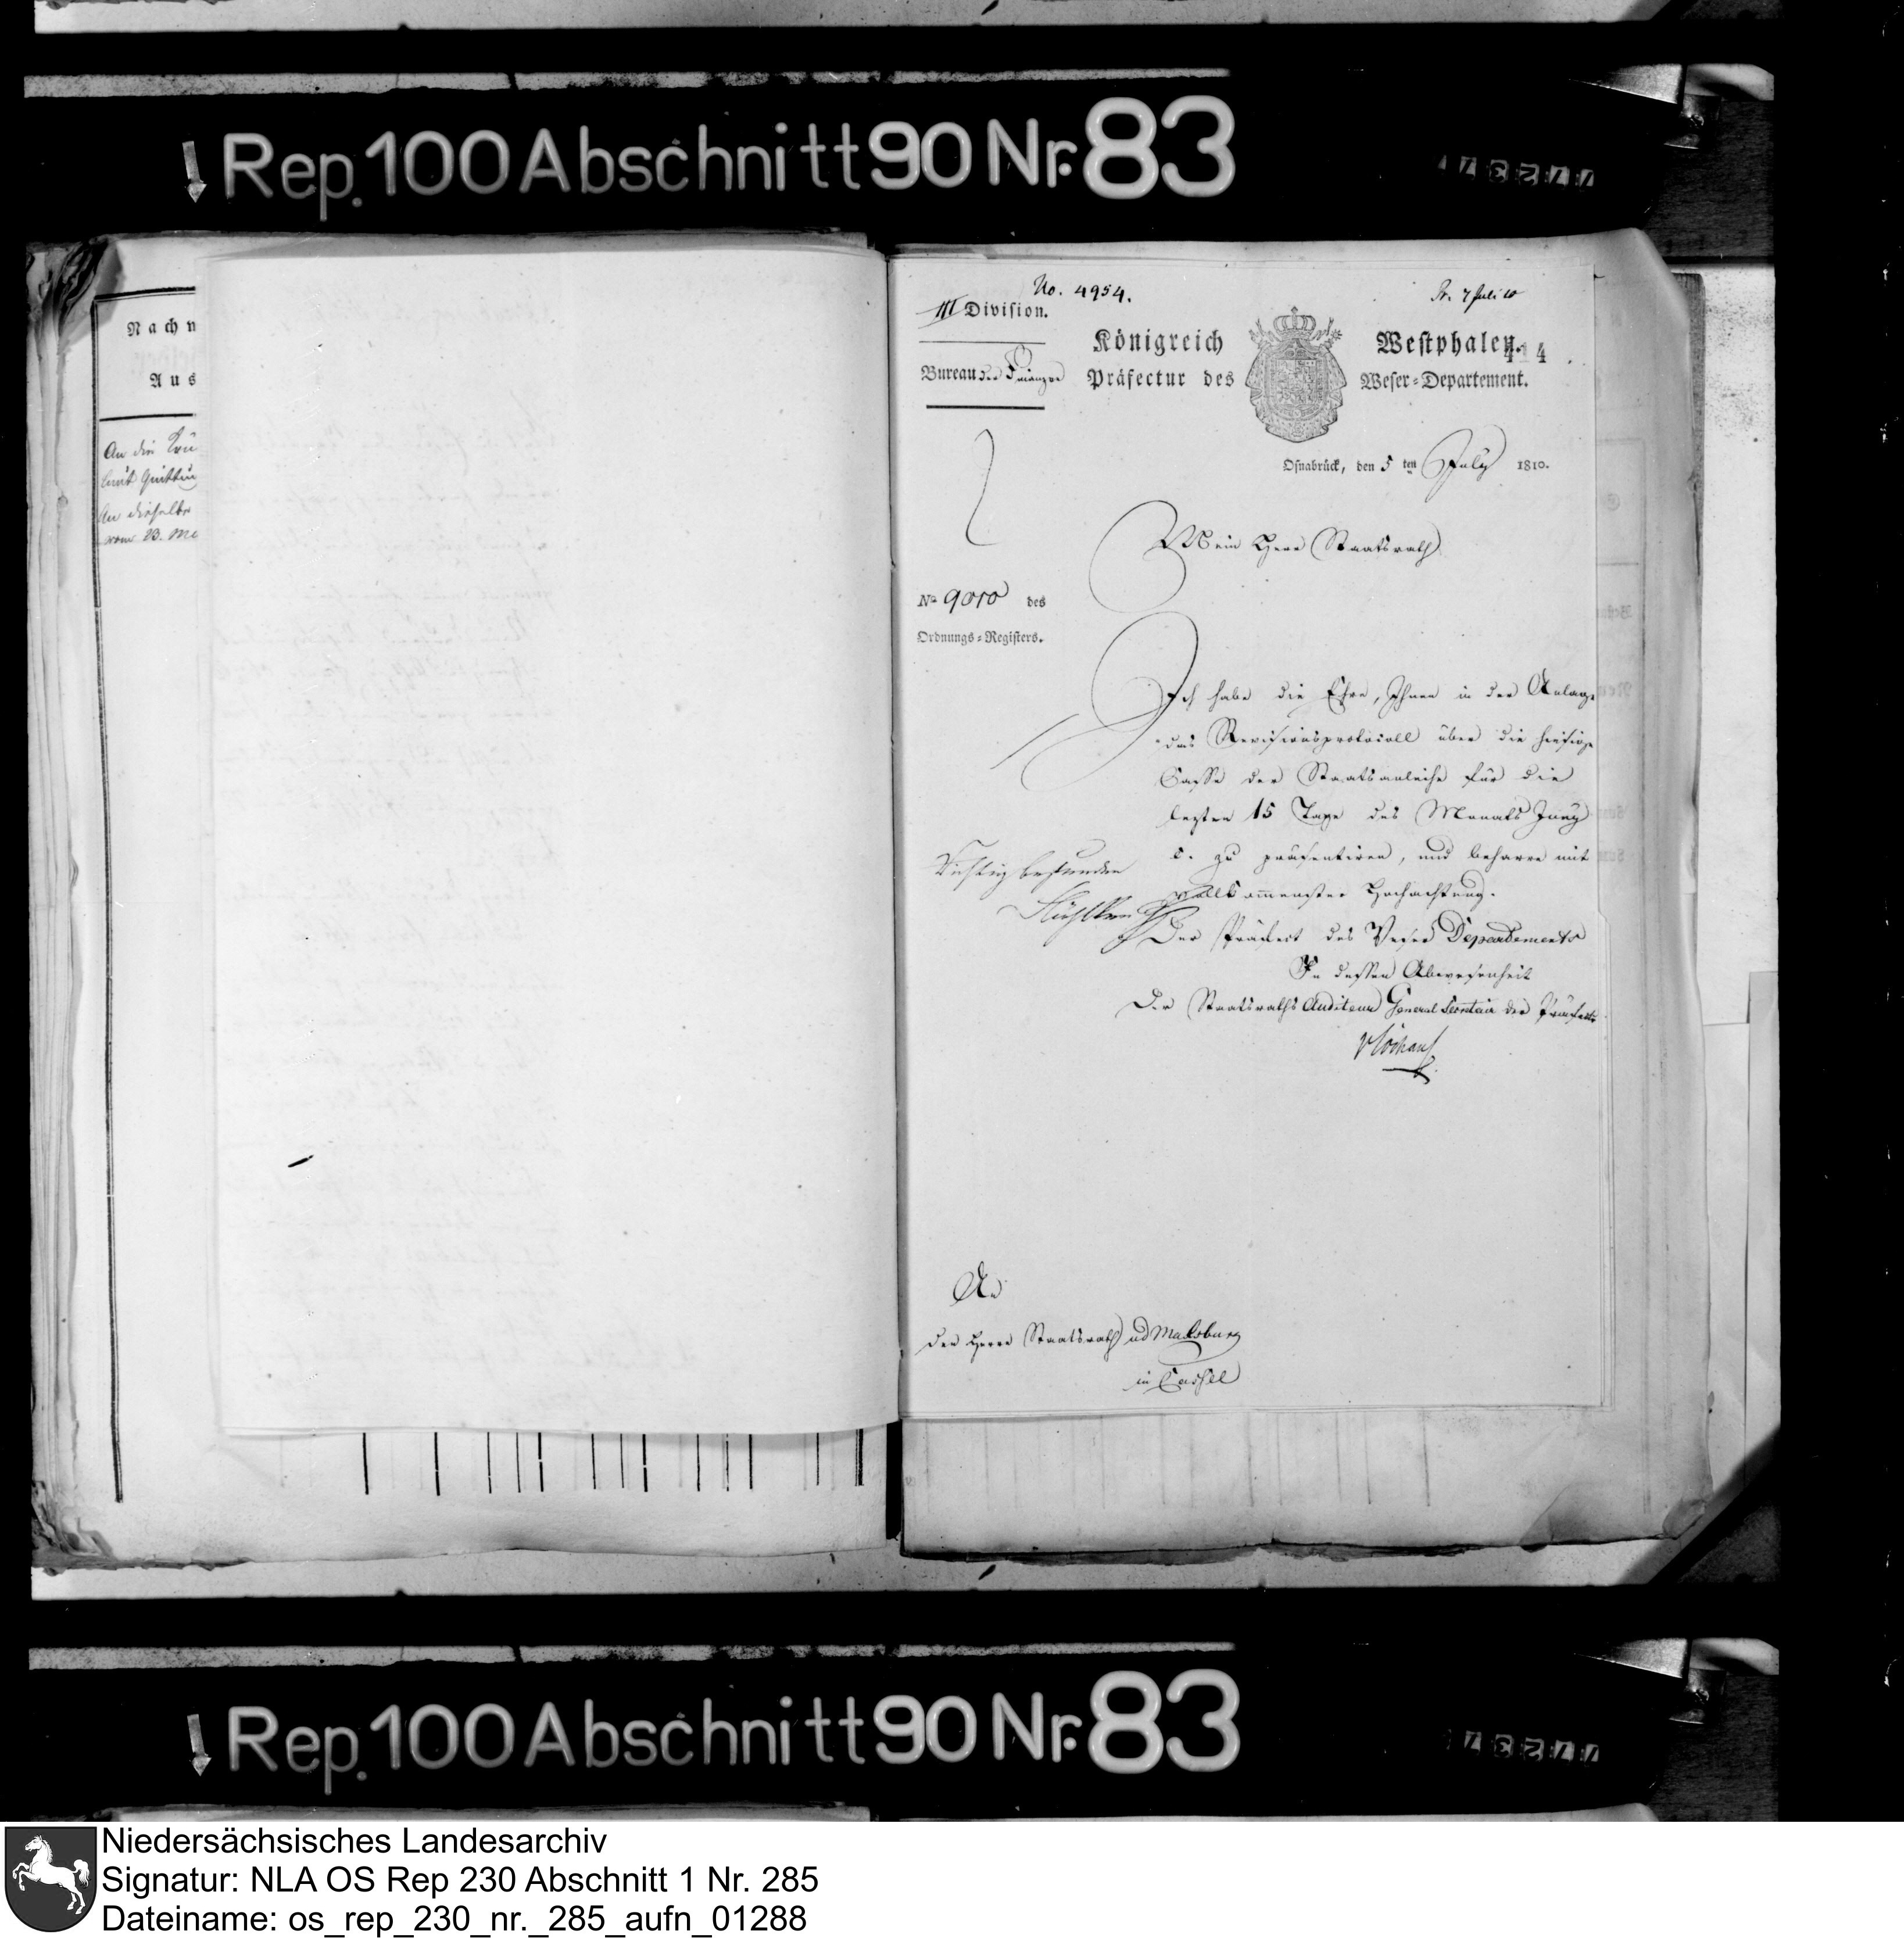 Rep. 100 Abschnitt 90 Nr. 83
Nachw
Aus
An die
laut Quittun
An dieselbe
vom 23. Ma
No. 4954.
Pr. 7 Juli 10
III Division.
Königreich Westphalen.
414
Bureau der Finanzen
Präfectur des Weser-Departement.
Osnabrück, den 5 ten July 1810.
Mein Herr Staatsrath
No 9010 des
Ordnungs-Registers.
Ich habe die Ehre, Ihnen in der Anlage
das Revisionsprotocoll über die hiesige
Casse der Staatsanleihe für die
lezten 15 Tage des Monats Juny
d. zu präsentiren, und beharre mit
vollkommenster Hochachtung.
Richtig befunden
Der Präfect des Weser Departements
In dessen Abwesenheit
Der Staatsraths Auditeur General Secretair der Präfectur
An
den Herrn Staatsrath von der Malsburg
in Cassel
Rep. 100 Abschnitt 90 Nr. 83
Niedersächsisches Landesarchiv
Signatur: NLA OS Rep 230 Abschnitt 1 Nr. 285
Dateiname: os_rep_230_nr._285_aufn_01288